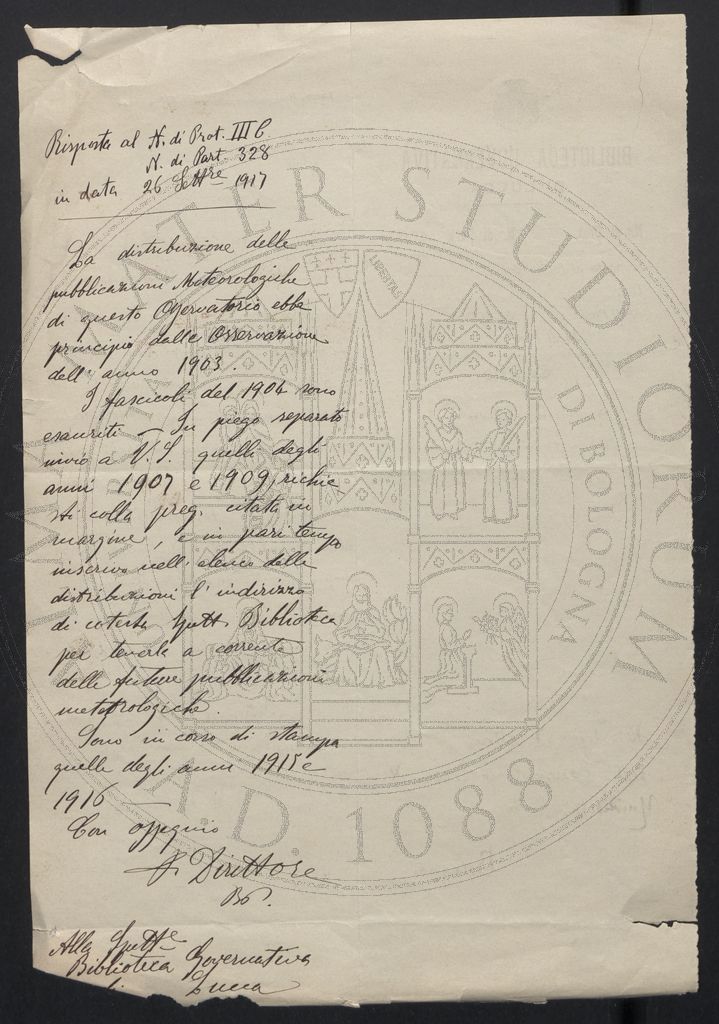 Risposta al N. di Prot. III C
N. di Part. 328
in data 26 Settre 1917
La distribuzione delle
pubblicazioni Meteorologiche
di questo Osservatorio ebbe
principio dalle Osservazione
dell'anno 1903.
I fascicoli del 1904 sono
esauriti – In piego separato
invio a V. S. quelli degli
anni 1907 e 1909, richie
sti colla preg. citata in
margine, e in pari tempo
inscrivo nell'elenco delle
distribuzioni l'indirizzo
di cotesta Spett. Biblioteca
per tenerla a corrente
delle future pubblicazioni
meteorologiche.
Sono in corso di stampa
quelle degli anni 1915 e
1916 –
Con ossequio
Il Direttore
Alla Spette
Biblioteca Governativa
di Lucca
ALMA MATER STUDIORUM
UNIVERSITÀ DI BOLOGNA
LIBERTAS
A.D. 1088